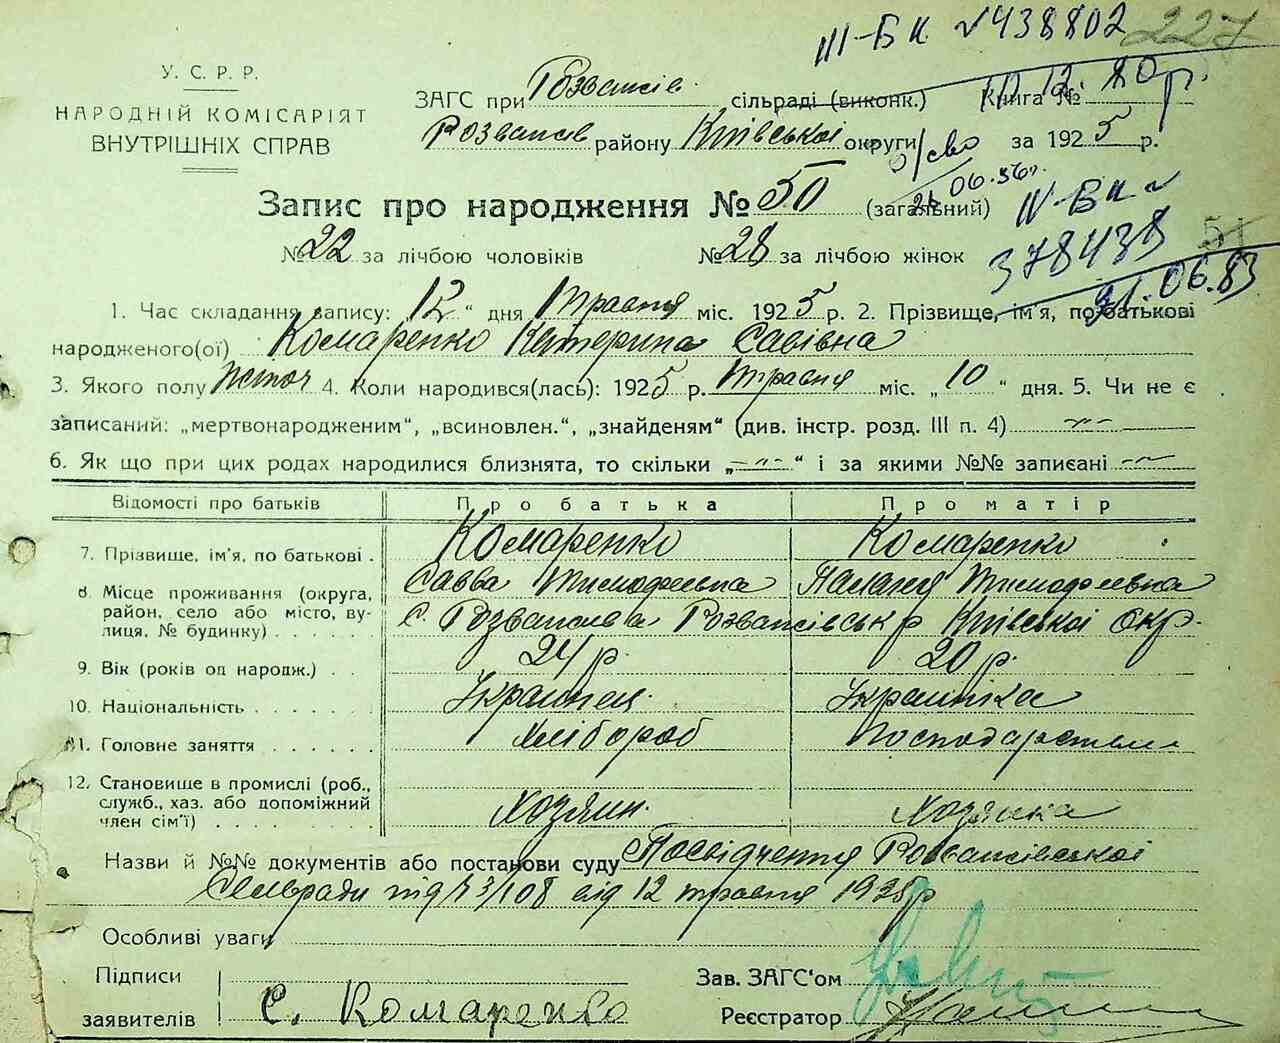 III-БК №438802 227
10.12.80р.
У. С. Р. Р.
НАРОДНІЙ КОМІСАРІЯТ
ВНУТРІШНІХ СПРАВ
ЗАГС при Розважів. сільраді (виконк.) Книга №
Розважів району Київської округи за 1925 р.
06.56р.
Запис про народження № 50 (загальний)
IV-БК №
378438
21.06.83
51
№ 22 за лічбою чоловіків № 28 за лічбою жінок
1. Час складання запису: „12“ дня травня міс. 1925 р. 2. Прізвище, ім'я, по батькові
народженого(ої) Комаренко Катерина Савівна
3. Якого полу 4. Коли народився(лась): 1925 р. травня міс. „10“ дня. 5. Чи не є
записаний: „мертвонародженим“, „всиновлен.“, „знайденям“ (див. інстр. розд. III п. 4) —"—
6. Як що при цих родах народилися близнята, то скільки „—"—“ і за якими №№ записані —"—
Відомості про батьків Про батька Про матір
7. Прізвище, ім'я, по батькові . Комаренко Комаренко
Савва Тимофеевка Палагея Тимофеевна
8 Місце проживання (округа,
район, село або місто, ву-
лиця, № будинку) . . . . . . с. Розважів Розважівськ р Київської окр.
9. Вік (років од народж.) . . 24 р. 20 р.
10. Національність . . . . . . . Українец. Українка
11. Головне заняття . . . . . . Хлібороб
12. Становище в промислі (роб.,
служб., хаз. або допоміжний
член сім'ї) . . . . . . . . . Хозяин. Хозяйка
Назви й №№ документів або постанови суду Посвідчення Розважівської
Сельради під № 3/108 від 12 травня 1925р
Особливі уваги
Підписи
заявителів С. Комаренко
Зав. ЗАГС'ом
Реєстратор